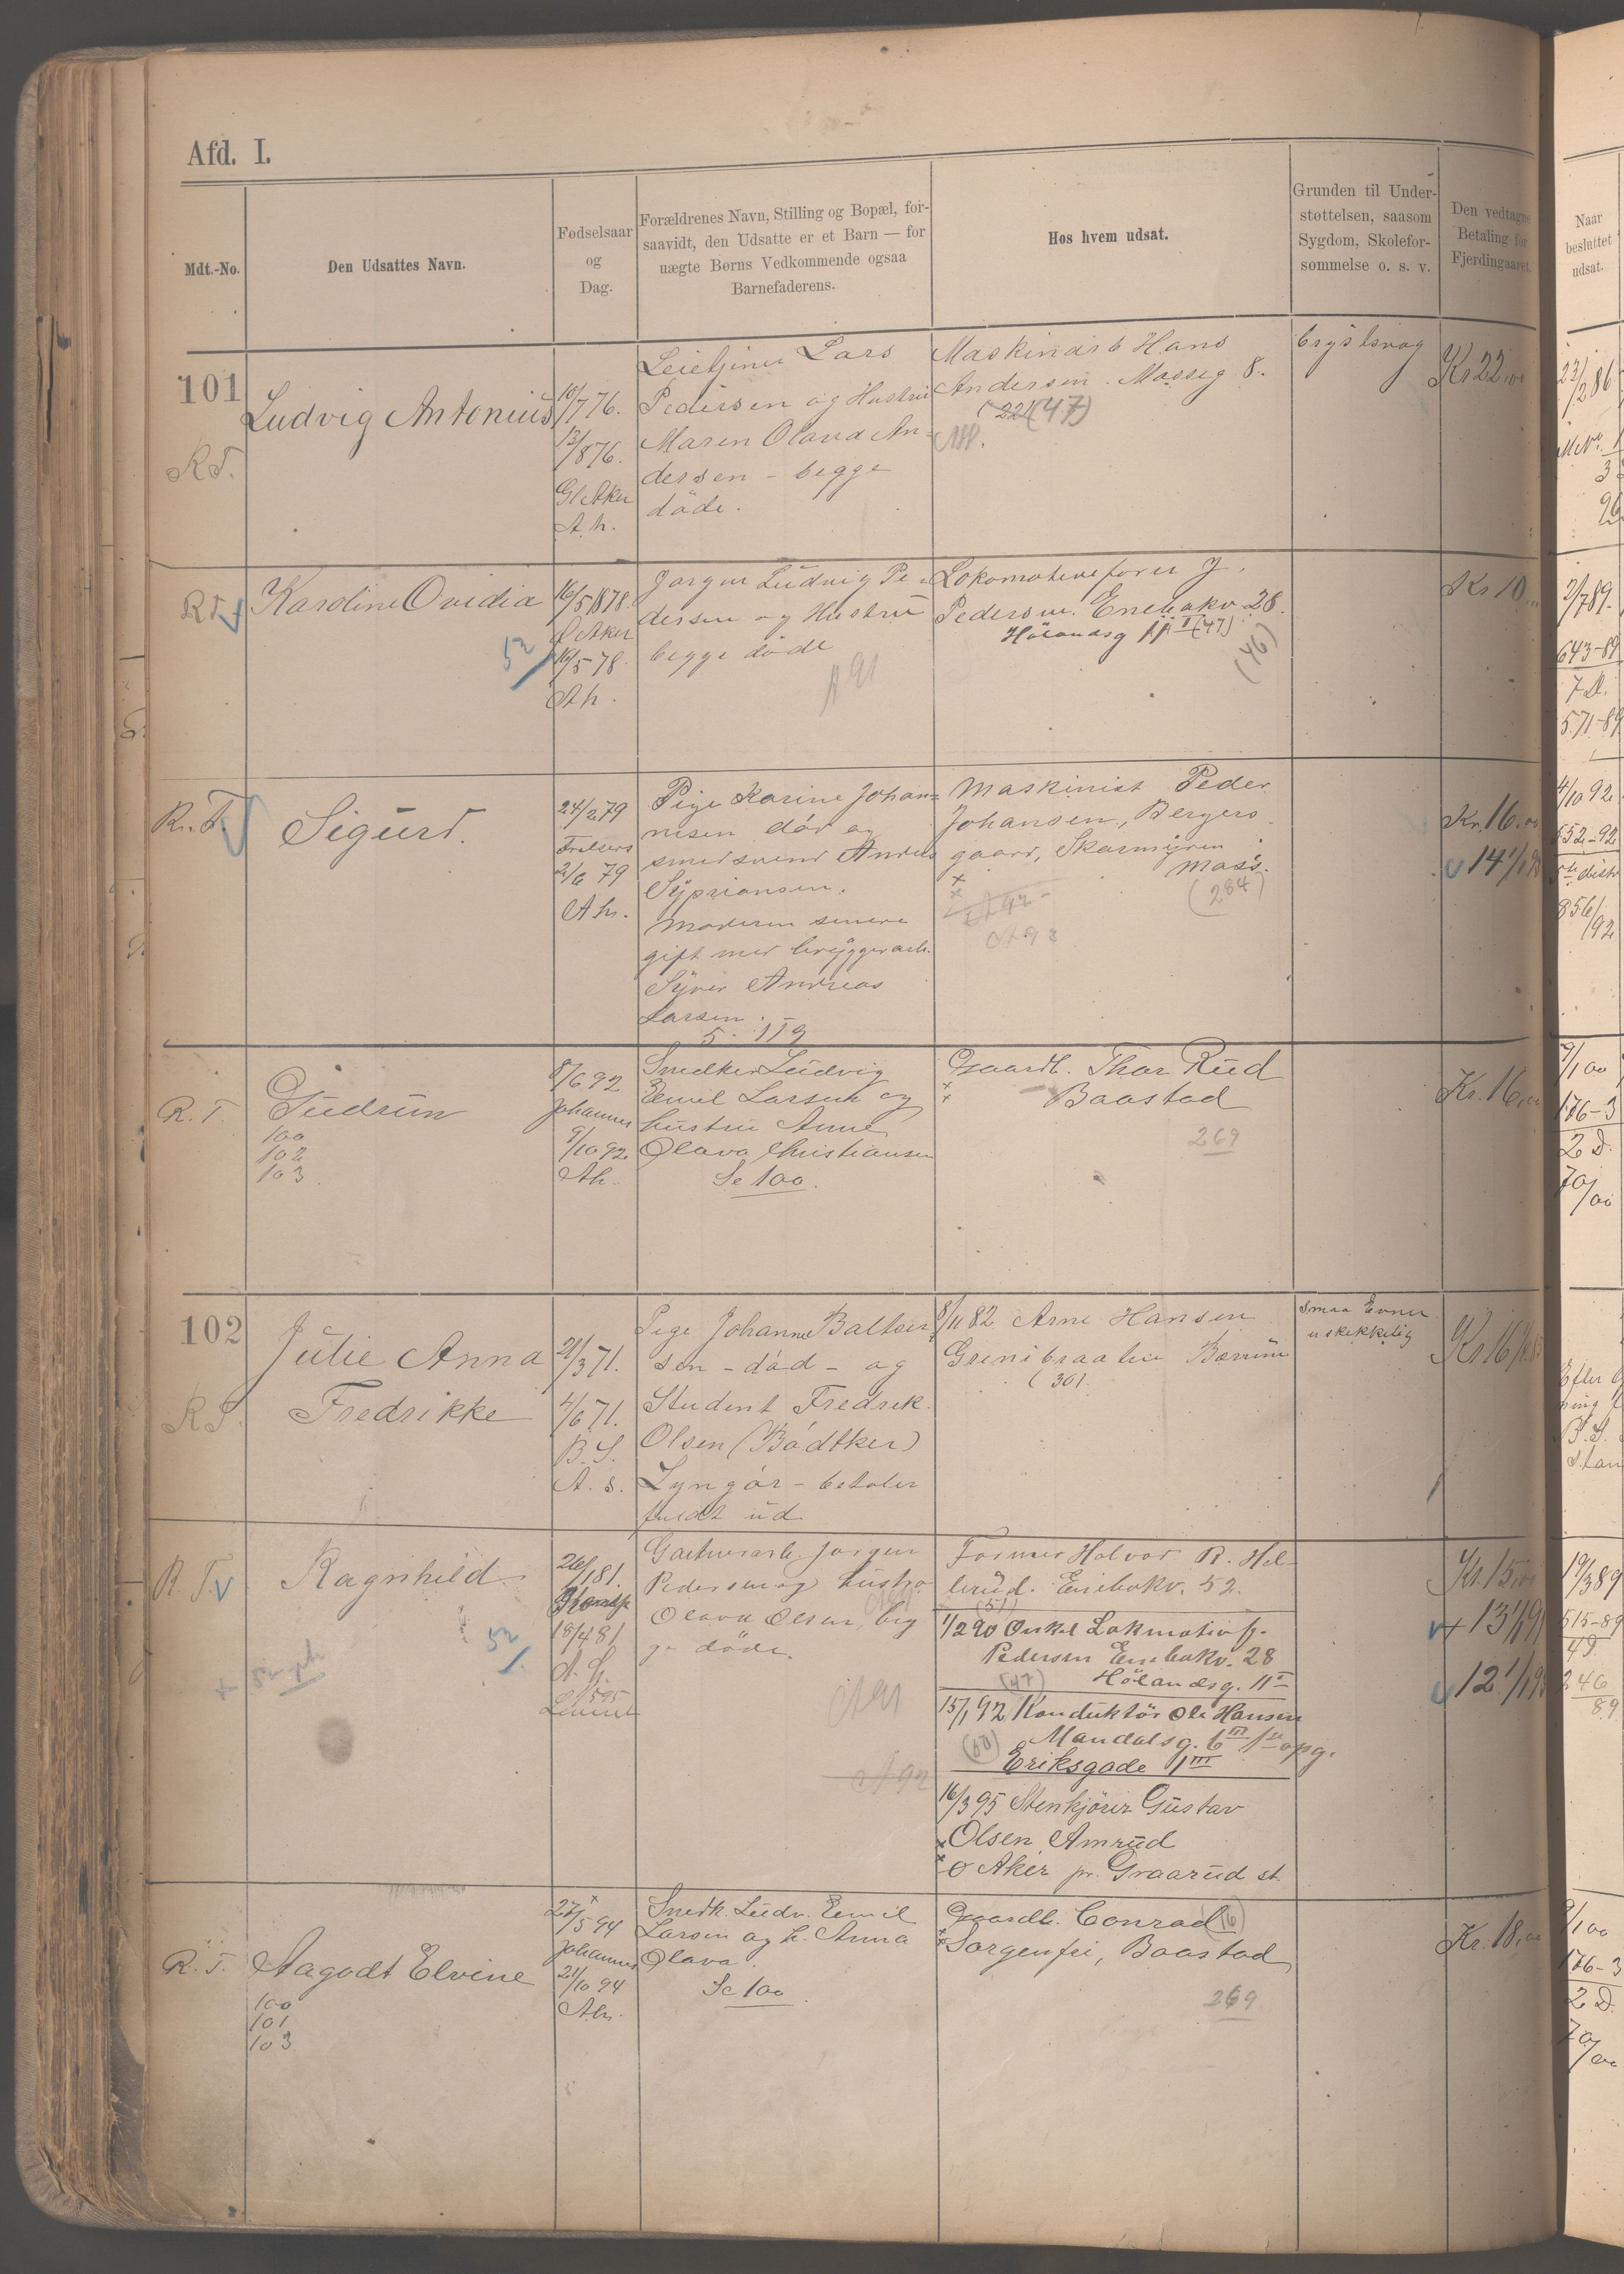 Afd. I.
Mdt.-No.
Den Udsattes Navn.
Fødselsaar
og
Dag.
Forældrenes Navn, Stilling og Bopæl, for-
saavidt, den Udsatte er et Barn — for
uægte Børns Vedkommende ogsaa
Barnefaderens.
Hos hvem udsat.
Grunden til Under-
støttelsen, saasom
Sygdom, Skolefor-
sømmelse o. s. v.
Den vedtagne
Betaling for
Fjerdingaaret.
Naar
besluttet
udsat.
101
Ludvig Antonius
10/7 76.
13/8 76.
Gl Aker
A. h.
Lars
Pedersen og Hustru
Maren Olava An-
dersen - begge
döde.
Maskinarb Hans
Andersen. Mosseg 8.
(47)
brystsvag
Kr 22,00
23/2 86
R. T.
Karoline Ovidia
52
16/5 1878.
Aker
16/5 78.
A h.
Jørgen Ludvig Pe-
dersen og Hustru
begge döde
A 91
Lokomotivefører J.
Pedersen. Enebakv. 28.
Hölandsg 11 II (47)
(46)
Kr 10
2/7 89.
643-89
7 d.
571-89
R. T.
Sigurd.
24/2 79
Frelsers
2/6 79
Ah.
Pige Karine Johan-
nesen död og
smedsvend Anders
Sypriansen.
Moderen senere
gift med bryggerarb.
Syver Andreas
Larsen.
5. 119
Maskinist Peder
Johansen, Bergers
gaard, Skarmyren
Moss.
(284)
A 92
A 93
Kr. 16.00
14 1/1 98
4/10 92
552-92
5te distr
856/92
R. T.
Gudrun
100
102
103
8/6 92
Johannes
9/10 92
Ah.
Snedker Ludvig
Emil Larsen og
hustru Anne
Olava Christiansen
Se 100.
Gaardb. Thor Rud
Baastad
269
Kr. 16,00
9/1 00
176-3
2 D.
70/00
102
Julie Anna
Fredrikke
21/3 71.
4/6 71.
B. S.
A. s.
Pige Johanne Baltser
sen - död - og
Student Fredrek
Olsen (Bödtker)
Lyngör - betaler
fuldt ud
8/11 82 Arne Hansen
Grinibraaten Bærum
(301
smaa Evner
uskikkelig
Kr 16
Efter
B. S.
R T.
Ragnhild
52
26/1 81.
18/4 81
A. h.
Jørgen
Pedersen og hustru
Olava Olsen, beg
ge döde.
A 91
A 92
Former Halvor R. Hel-
lerud. Enebakv. 52.
(51)
1/2 90 Onkel Lokmotivf.
Pedersen Enebakv. 28
Hölandsg. 11 II
(47)
15/1 92 Konduktör Ole Hansen
Mandalsg. 6 III 1ste opg.
Eriksgade 1 III
16/3 95 Stenkjörer Gustav
Olsen Amrud
ö Aker pr. Graarud st.
Kr. 15,00
13 1/1 91
12 1/1 95
19/3 89
515-89
4 d.
246
89
R. T.
Aagodt Elvine
100
101
103
27/5 94
Johannes
21/10 94
Ah.
Snedk. Ludv. Emil
Larsen og h. Anna
Olava.
Se 100
Gaardb. Conrad (16)
Sorgenfri, Baastad
269
Kr. 18,00
9/1 00
176-3
2 D.
70/00